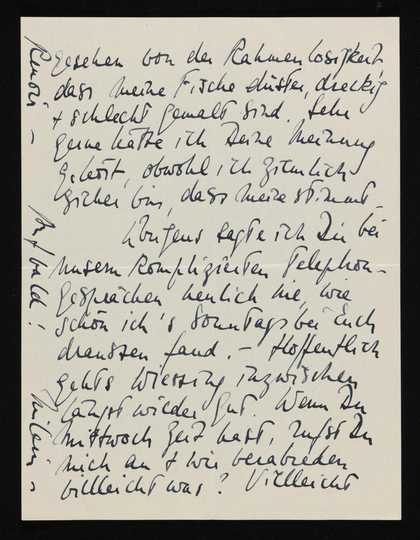 gesehen von der Rahmenlosigkeit
dass meine Fische düster, dreckig
+ schlecht gemalt sind. Sehr
gerne hätte ich Deine Meinung
gehört, obwohl ich ziemlich
sicher bin, dass meine stimmt.
Übrigens sagte ich Dir bei
unsern komplizierten Telephon-
gesprächen neulich nie, wie
schön ich's Sonntags bei Euch
draussen fand. – Hoffentlich
gehts Wiessing inzwischen
längst wieder gut. Wenn Du
Mittwoch Zeit hast, rufst Du
mich an + wir verabreden
villeicht was? Vielleicht
Auf bald!